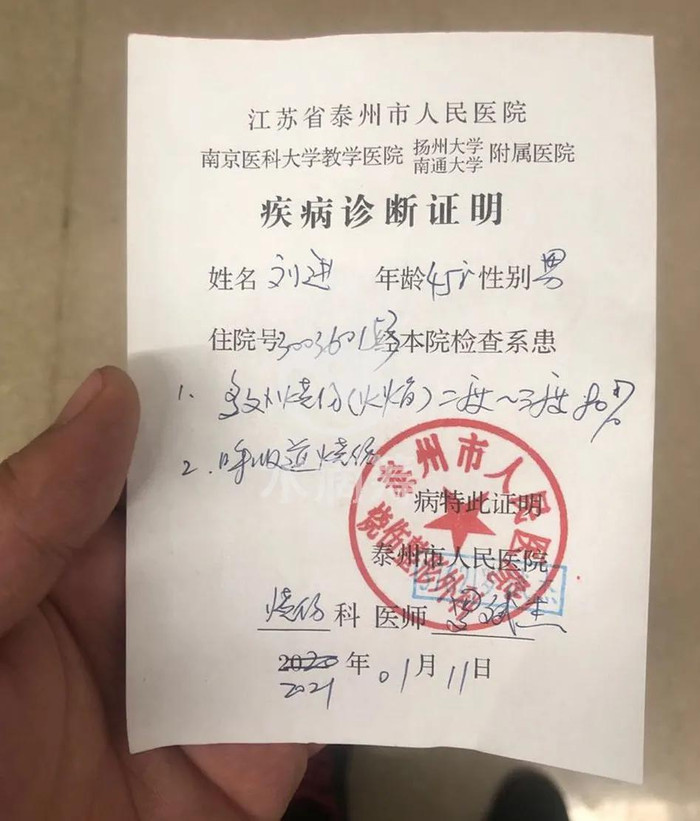 江苏省泰州市人民医院
南京医科大学教学医院 扬州大学 南通大学 附属医院
疾病诊断证明
姓名 刘进 年龄 45岁 性别 男
住院号 经本院检查系患
1. 多处烧伤(火焰)二度~三度 80%
2. 呼吸道烧伤
病特此证明
泰州市人民医院
烧伤科 医师
2020 年 01月 11日
2021
泰州市人民医院
烧伤整形外科